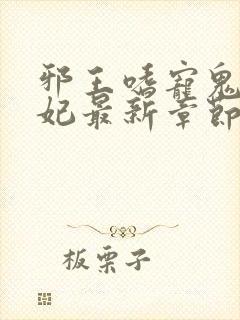 邪王嗜宠鬼
妃最新章节
板栗子